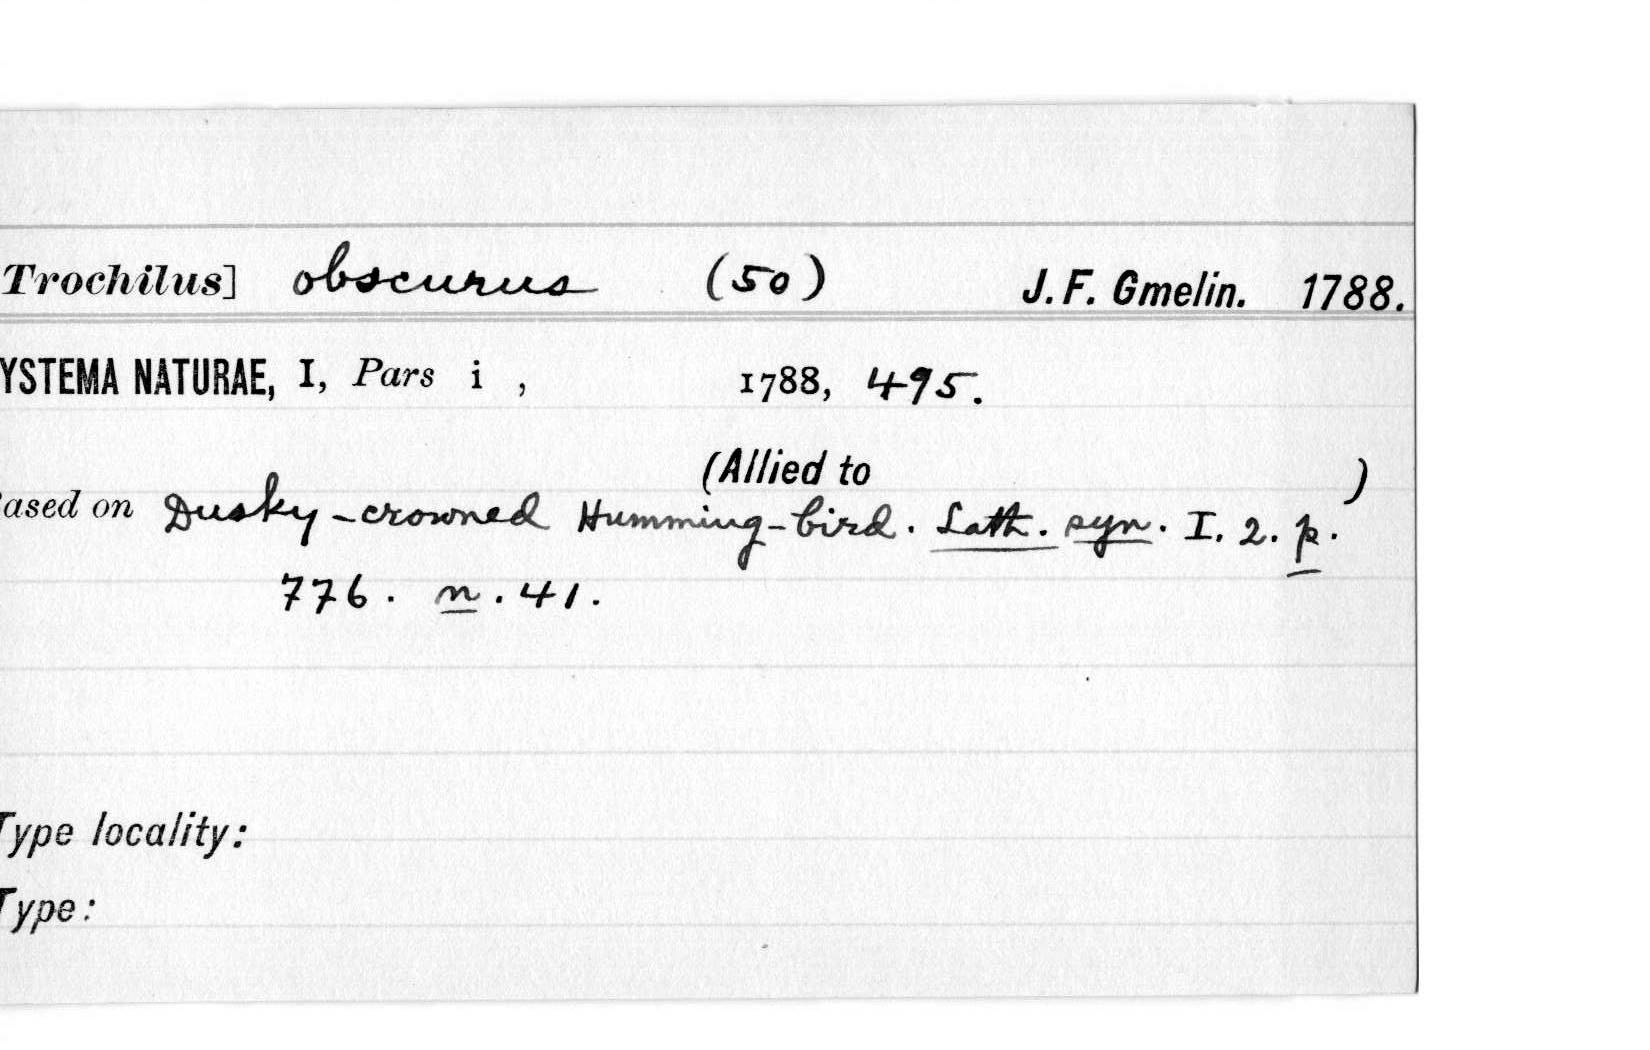 Trochilus] obscurus (50) J. F. Gmelin. 1788.
YSTEMA NATURAE, I, Pars i , 1788, 495.
(Allied to )
ased on Dusky-crowned Humming-bird. Lath. syn. I. 2. p.
776. n. 41.
Type locality:
Type: